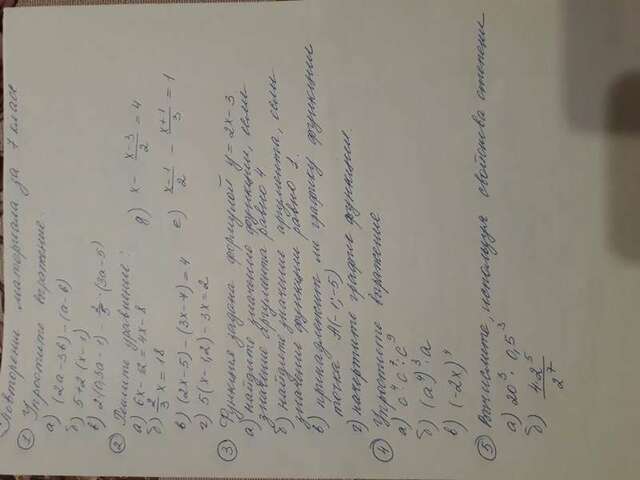 Повторение материала за 7 класс
① Упростите выражение.
а) (2а-3в)-(а-в)
б) 5+2(х-1)
в) 2(1,3а-1)-(3а-5)
② Решите уравнение:
а) 6х-12=4х-8
б) 2/3 х=18
в) (2х-5)-(3х-7)=4
г) 5(х-1,2)-3х=2
д) х - х-3/2 = 4
е) х-1/2 - х+1/3 = 1
③ Функция задана формулой у=2х-3
а) найдите значение функции, если
значение аргумента равно 4
б) найдите значение аргумента, если
значение функции равно 1.
в) принадлежит ли графику функции
точка А(-1;-5)
г) начертите график функции.
④ Упростите выражение
а) с⁵·с⁷:с⁹
б) (а⁴)³·а
в) (-2х)⁴
⑤ Вычислите, используя свойства степени
а) 20³·0,5³
б) 4·2⁵/2⁷